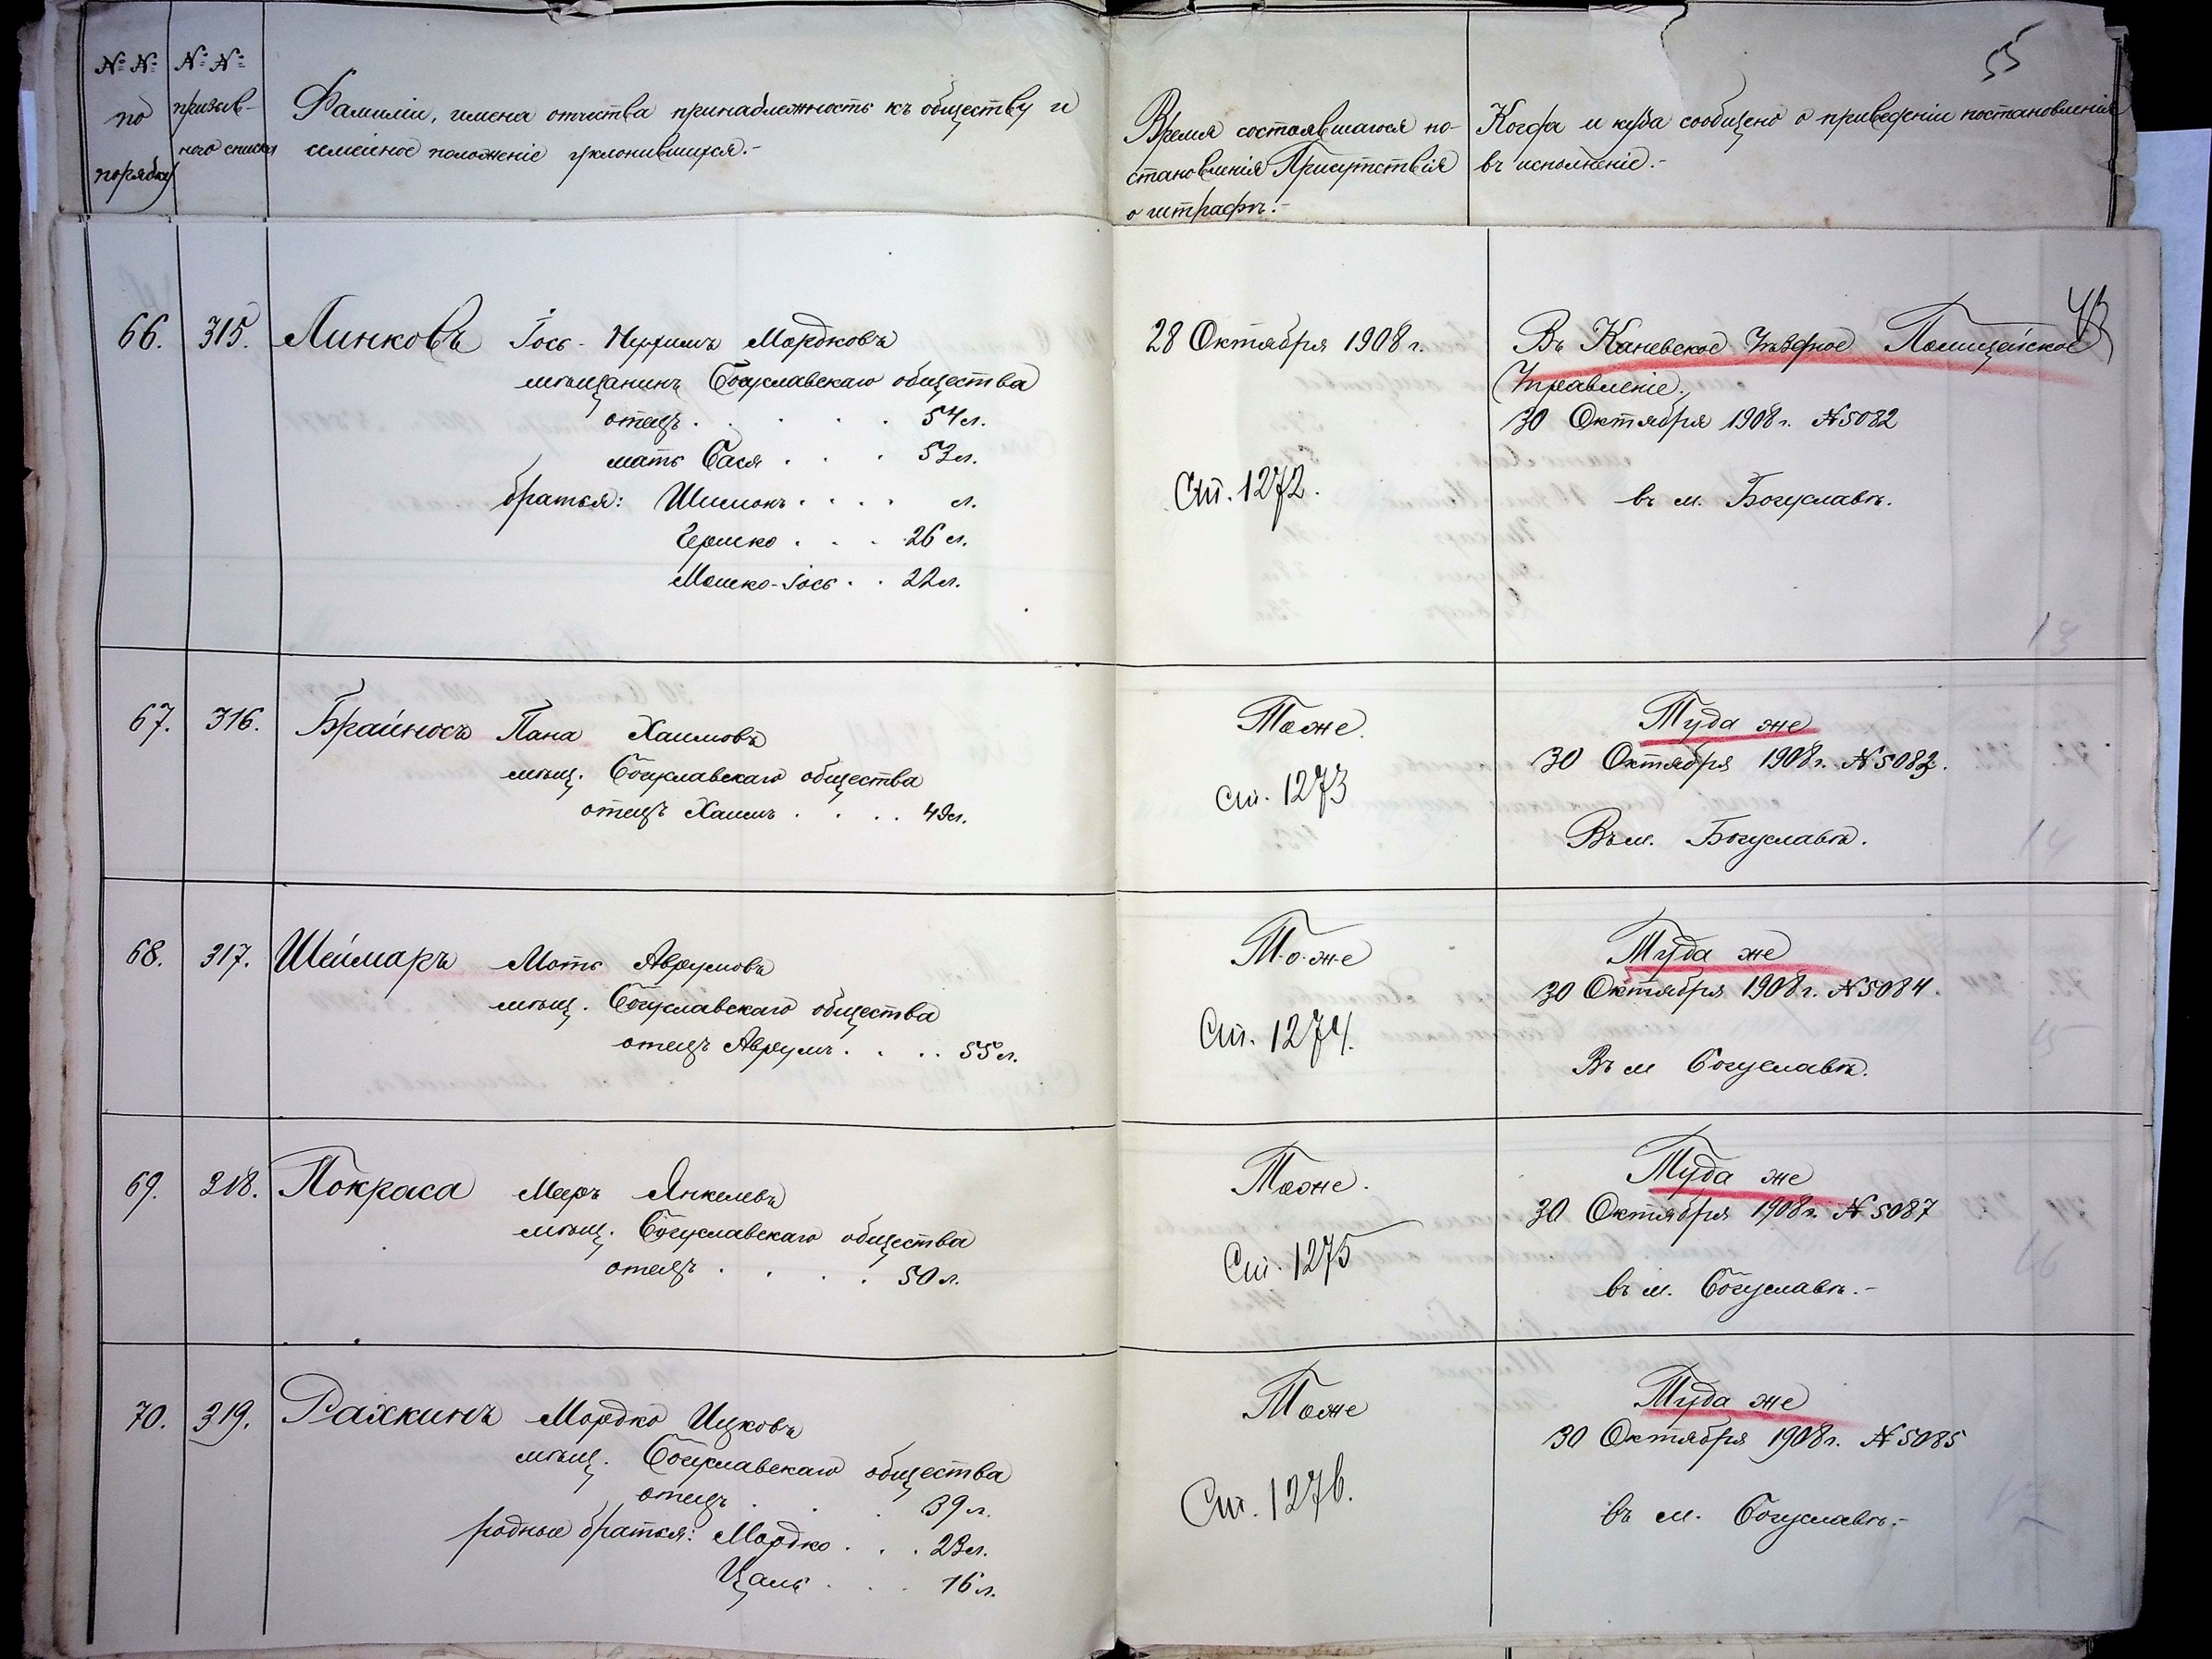 №№ по порядку
№№ призывного списка
Фамиліи, имена отчества принадлежность къ обществу и
семейное положеніе уклонившихся.-
Время состоявшагося по-
становленія Присутствія
о штрафѣ.-
Когда и куда сообщено о приведеніи постановленія
въ исполненіе.-
55
66. 315. Линковъ Іось- Мордковъ
мѣщанинъ Богуславскаго общества
отецъ . . . . 54 л.
мать Бася . . . 53 л.
братья: Шимонъ . . . . л.
Гершко . . . 26 л.
Мошко-Іось . . 22 л.
28 Октября 1908 г.
Ст. 1272.
Въ Каневское Уѣздное Полицейское
Управленіе.
30 Октября 1908 г. № 5082
въ м. Богуславѣ.
67. 316. Брайносъ Пана Хаимовъ
мѣщ. Богуславскаго общества
отецъ Хаимъ . . . . 49 л.
Тоже.
Ст. 1273
Туда же
30 Октября 1908 г. № 5083.
Въ м. Богуславѣ.
68. 317. Шеймаръ Моть Аврумовъ
мѣщ. Богуславскаго общества
отецъ Аврумъ . . . . 55 л.
Тоже
Ст. 1274.
Туда же
30 Октября 1908 г. № 5084.
Въ м Богуславѣ.
69. 318. Покраса Мееръ Янкелевъ
мѣщ. Богуславскаго общества
отецъ . . . . 50 л.
Тоже.
Ст. 1275
Туда же
30 Октября 1908 г. № 5087
въ м. Богуславѣ.-
70. 319. Рахкинъ Мордко Ицковъ
мѣщ. Богуславскаго общества
отецъ . . . 39 л.
родные братья: Мордко . . . 23 л.
Цаль . . . 16 л.
Тоже
Ст. 1276.
Туда же
30 Октября 1908 г. № 5085
въ м. Богуславѣ.-